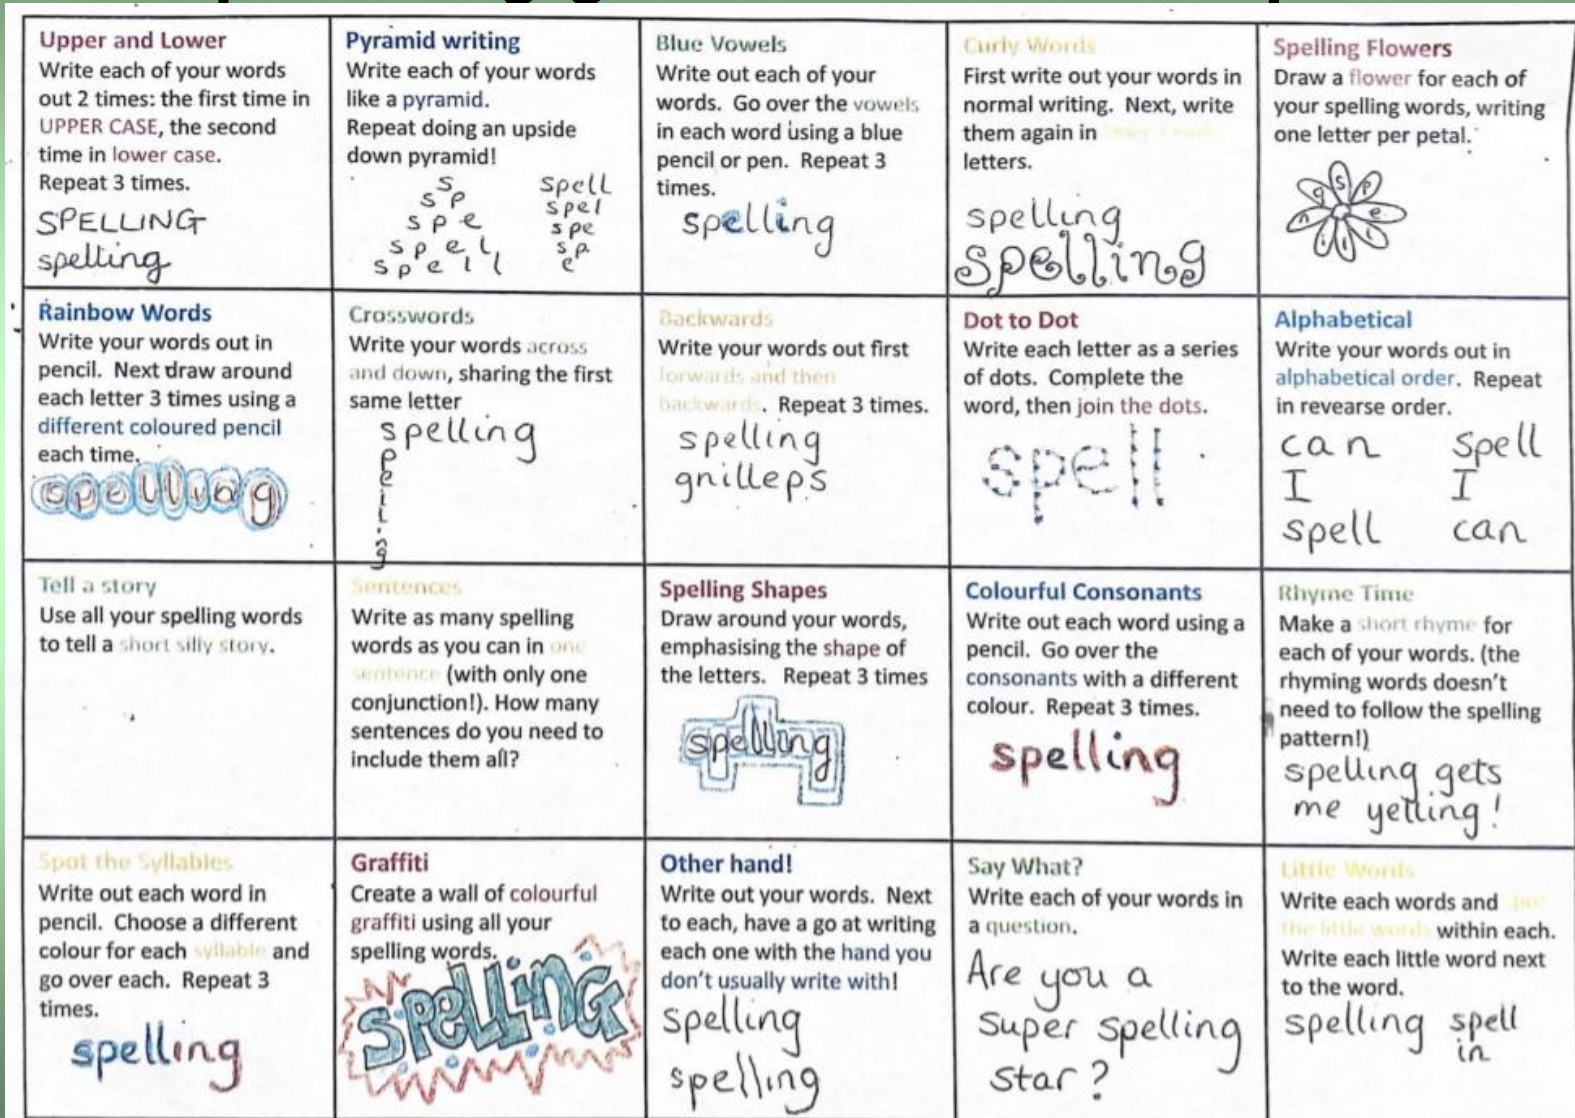 Upper and Lower
Write each of your words
out 2 times: the first time in
UPPER CASE, the second
time in lower case.
Repeat 3 times.
SPELLING
spelling
Pyramid writing
Write each of your words
like a pyramid.
Repeat doing an upside
down pyramid!
s
s p
s p e
s p e l
s p e l l
spell
spel
spe
sp
Blue Vowels
Write out each of your
words. Go over the vowels
in each word using a blue
pencil or pen. Repeat 3
times.
spelling
Curly Words
First write out your words in
normal writing. Next, write
them again in
letters.
spelling
spelling
Spelling Flowers
Draw a flower for each of
your spelling words, writing
one letter per petal.
s p e l l i n g
Rainbow Words
Write your words out in
pencil. Next draw around
each letter 3 times using a
different coloured pencil
each time.
spelling
Crosswords
Write your words across
and down, sharing the first
same letter
spelling
p
e
l
l
i
n
g
Backwards
Write your words out first
forwards and then
backwards. Repeat 3 times.
spelling
gnilleps
Dot to Dot
Write each letter as a series
of dots. Complete the
word, then join the dots.
spell
Alphabetical
Write your words out in
alphabetical order. Repeat
in revearse order.
can spell
I I
spell can
Tell a story
Use all your spelling words
to tell a short silly story.
Sentences
Write as many spelling
words as you can in one
sentence (with only one
conjunction!). How many
sentences do you need to
include them all?
Spelling Shapes
Draw around your words,
emphasising the shape of
the letters. Repeat 3 times
spelling
Colourful Consonants
Write out each word using a
pencil. Go over the
consonants with a different
colour. Repeat 3 times.
spelling
Rhyme Time
Make a short rhyme for
each of your words. (the
rhyming words doesn't
need to follow the spelling
pattern!)
spelling gets
me yelling!
Spot the Syllables
Write out each word in
pencil. Choose a different
colour for each syllable and
go over each. Repeat 3
times.
spelling
Graffiti
Create a wall of colourful
graffiti using all your
spelling words.
SPELLING
Other hand!
Write out your words. Next
to each, have a go at writing
each one with the hand you
don't usually write with!
spelling
spelling
Say What?
Write each of your words in
a question.
Are you a
super spelling
star?
Little Words
Write each words and
the little words within each.
Write each little word next
to the word.
spelling spell
in